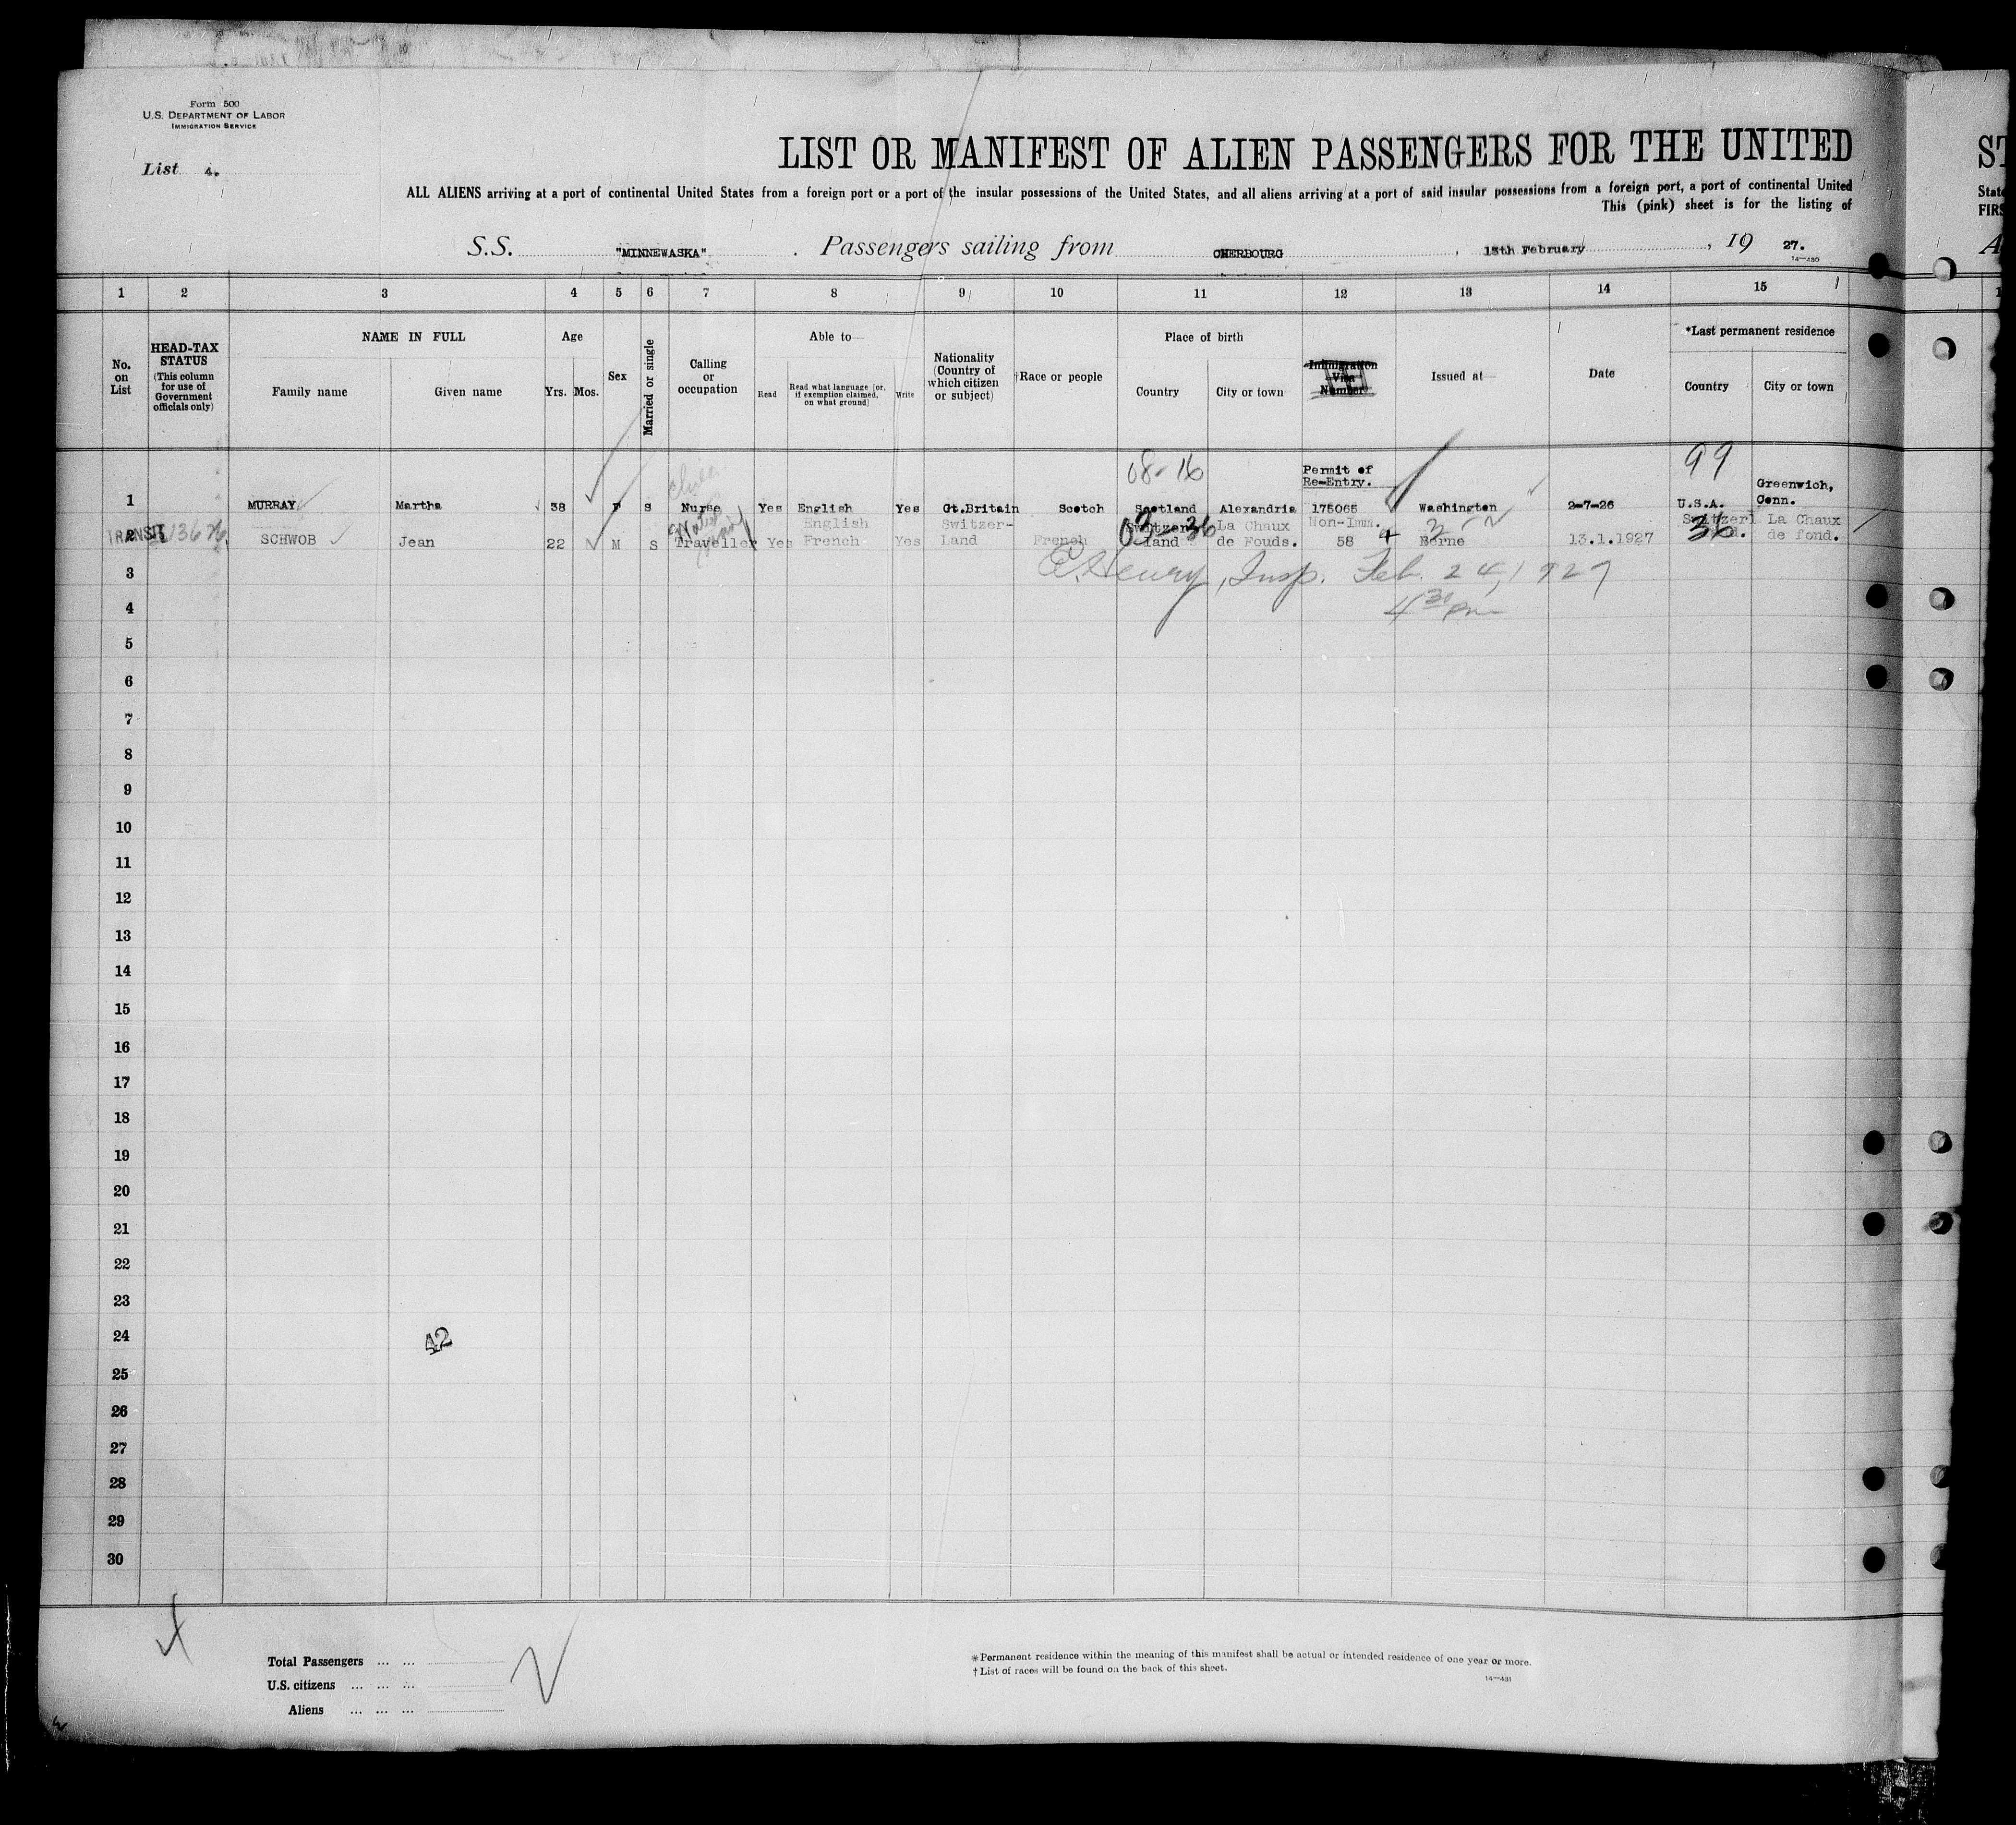 Form 500
U.S. DEPARTMENT OF LABOR
IMMIGRATION SERVICE
List 4.
LIST OR MANIFEST OF ALIEN PASSENGERS FOR THE UNITED
ST
ALL ALIENS arriving at a port of continental United States from a foreign port or a port of the insular possessions of the United States, and all aliens arriving at a port of said insular possessions from a foreign port, a port of continental United
State
This (pink) sheet is for the listing of
FIRS
S.S. "MINNEWASKA" . Passengers sailing from CHERBOURG , 15th February , 19 27.
A
14—430
1 2 3 4 5 6 7 8 9 10 11 12 13 14 15
No. on List
HEAD-TAX STATUS (This column for use of Government officials only)
NAME IN FULL
Family name Given name
Age
Yrs. Mos.
Sex
Married or single
Calling or occupation
Able to
Read Read what language [or, if exemption claimed, on what ground] Write
Nationality (Country of which citizen or subject)
†Race or people
Place of birth
Country City or town
Immigration Visa Number
Issued at
Date
*Last permanent residence
Country City or town
08-16
Permit of Re-Entry.
99
1 MURRAY Martha 38 F S Nurse Yes English Yes Gt.Britain Scotch Scotland Alexandria 175065 Washington 2-7-26 U.S.A. Greenwich, Conn.
TRANSIT
2 SCHWOB Jean 22 M S Traveller Yes English French Yes Switzer-Land French Switzer-land La Chaux de Fouds. Non-Imm. 58 Berne 13.1.1927 Switzerl d. La Chaux de fond.
03-36
36
3 E. Henry, Insp. Feb. 24, 1927
4 4 30 pm
5
6
7
8
9
10
11
12
13
14
15
16
17
18
19
20
21
22
23
24
42
25
26
27
28
29
30
Total Passengers ... ...
U.S. citizens ... ... ...
Aliens ... ... ...
* Permanent residence within the meaning of this manifest shall be actual or intended residence of one year or more.
† List of races will be found on the back of this sheet.
14—431